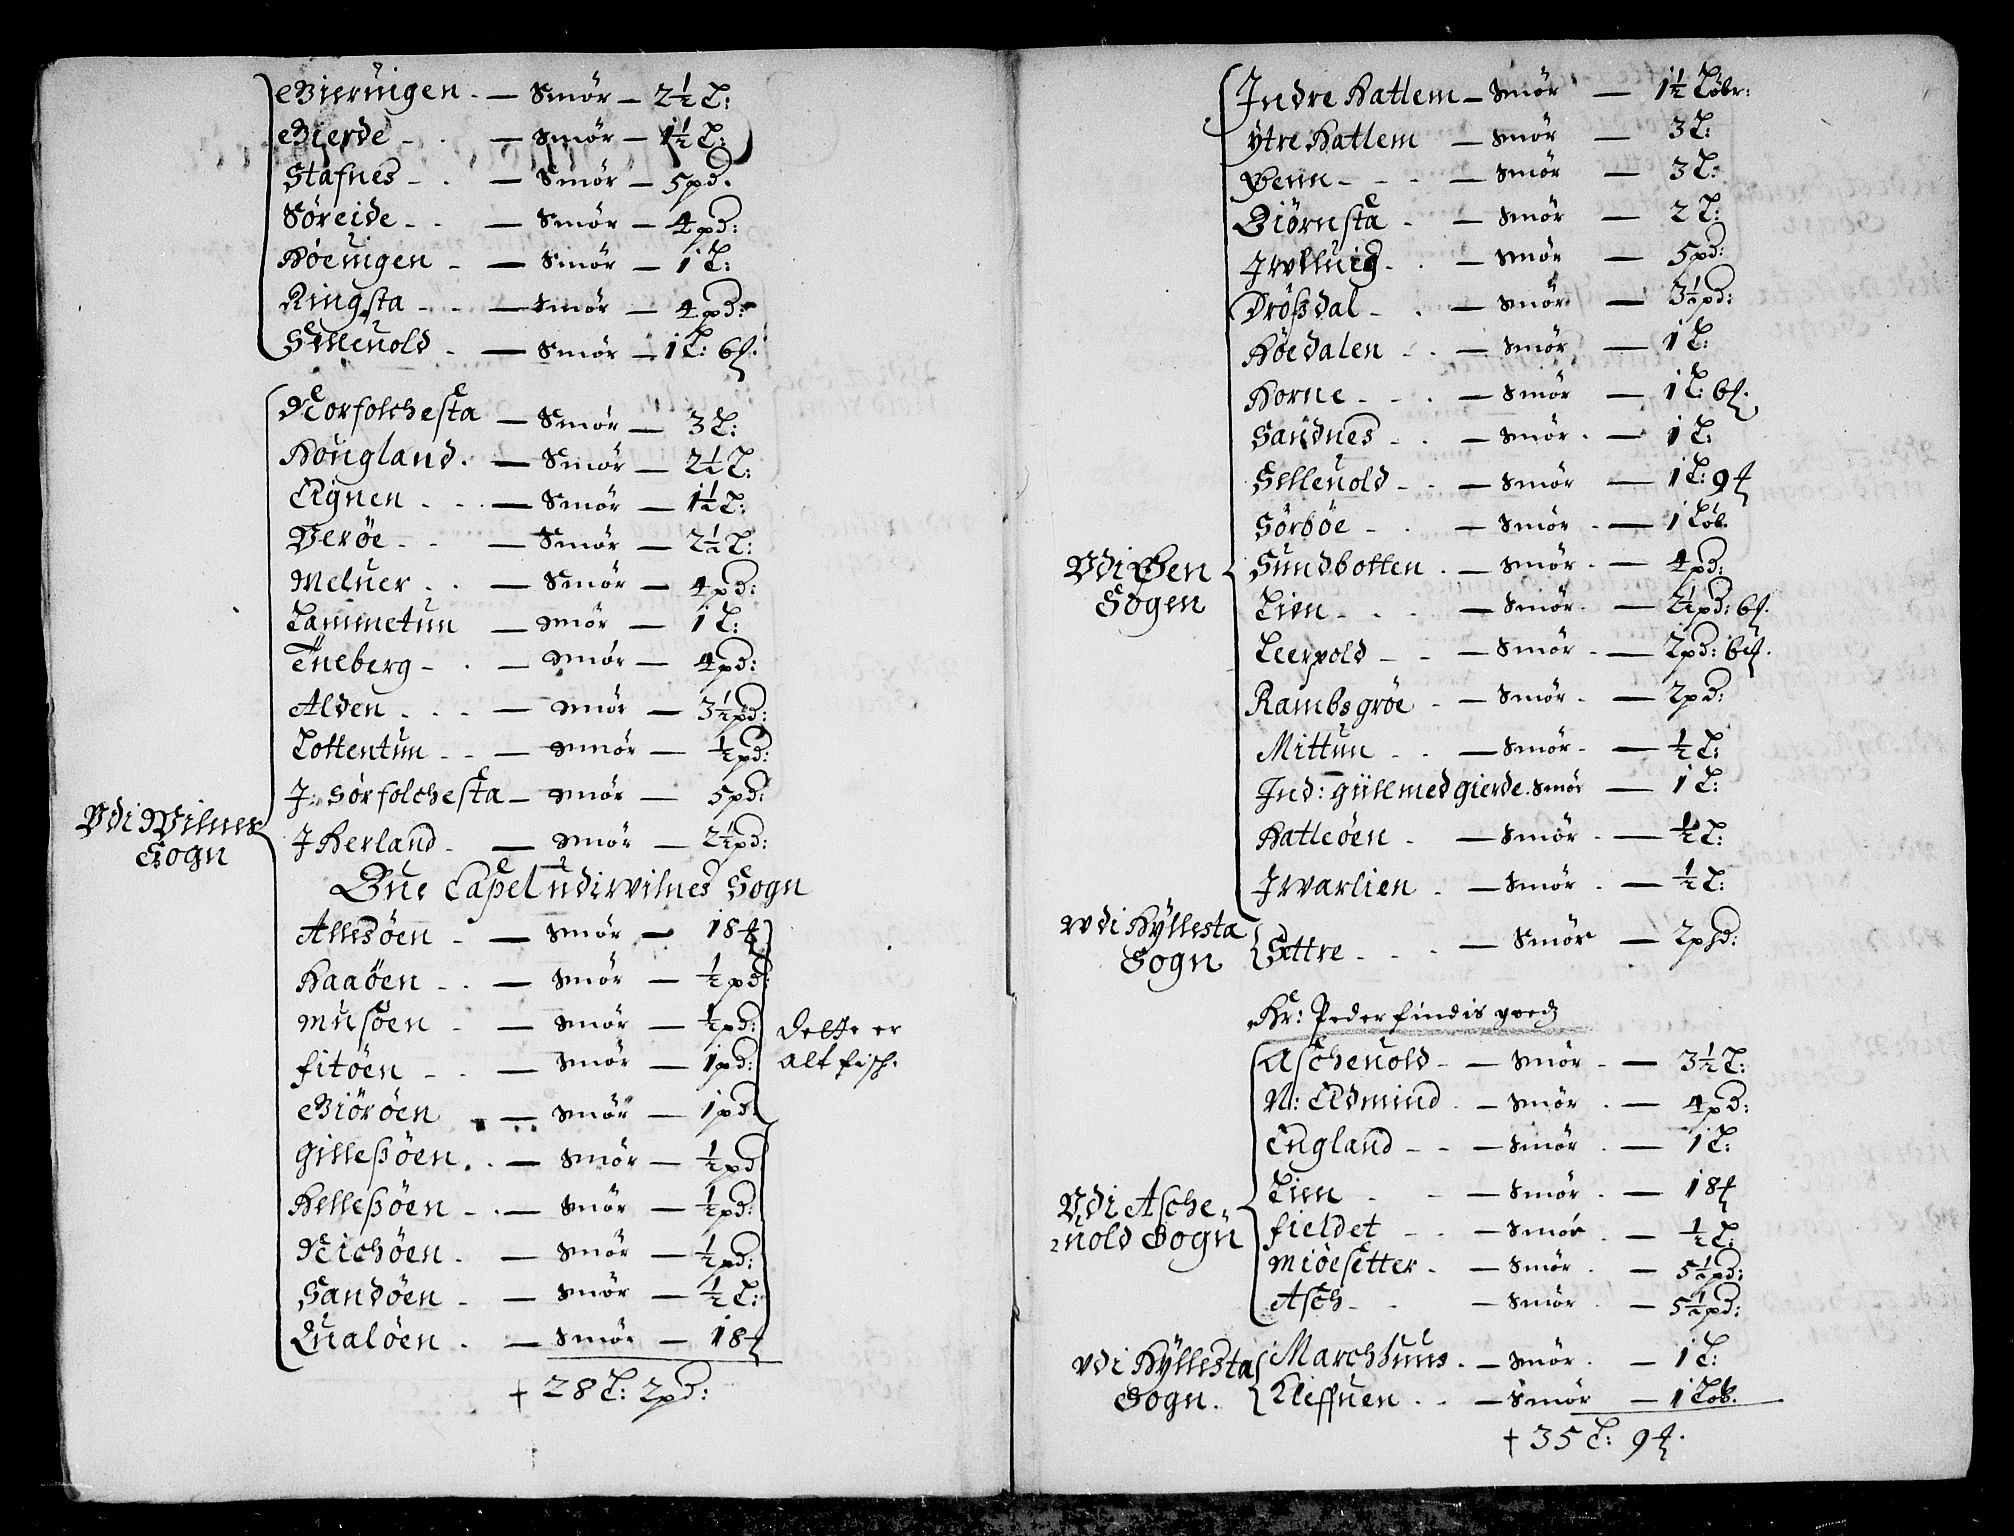 Bieruigen - Smör - 2½ L:
Bierde - Smör - 1½ L:
Stafnes - Smör - 5 pd.
Söreide - Smör - 4 pd:
Höeuigen - Smör - 1 L:
Ringsta - Smör - 4 pd:
Selleuold - Smör - 1 L: 6
Norfolchesta - Smör - 3 L:
Hougland - Smör - 2½ L:
Eignen - Smör - 1½ L:
Veröe - Smör - 2½ L:
Meluer - Smör - 4 pd:
Lammetun - Smör - 1 L:
Tneberg - Smör - 4 pd:
Alden - Smör - 3½ pd:
Tottentun - Smör - ½ pd:
J: Sörfolchesta - Smör - 5 pd:
Vdi Wilnes
Sogn
J Herland - Smör - 2½ pd:
Bue Capel udi wilnes Sogn
Allesöen - Smör - 18
Haaöen - Smör - ½ pd
Musöen - Smör - ½ pd:
Dette er
alt fisch.
fitöen - Smör - 1 pd:
Biöröen - Smör - 1 pd
Gilleßöen - Smör - ½ pd
Helleßöen - Smör - ½ pd:
Nichöen - Smör - ½ pd:
Sandöen - Smör - ½ L:
Qualöen - Smör - 18
+ 28 L: 2 pd:
Indre Hatlem - Smör - 1½ Löbr:
ytre Hatlem - Smör - 3 L:
Øenn - Smör - 3 L:
Biörnsta - Smör - 2 L:
Smör - 5 pd:
Drößdal - Smör - 3½ pd:
Höedalen - Smör - 1 L:
Horne - Smör - 1 L: 6
Sandnes - Smör - 1 L:
Selleuold - Smör - 1 L: 9
Sörböe - Smör - 1 Löb.
Vdi Øen
Sogen
Sundbotten - Smör - 4 pd:
Lien - Smör - 2½ pd: 6
Leerpold - Smör - 2 pd: 6
Rambsgröe - Smör - 2 pd:
Mittun - Smör - ½ L:
Ind: giill med gierde Smör - 1 L:
Hatleöen - Smör - ½ L:
Jwarlien - Smör - ½ L:
wdi Hÿllesta
Sogn
Settre - Smör - 2 pd:
Hr: Peder findis goedz
Aschenold - Smör - 3½ L:
N: Eldmind - Smör - 4 pd:
England - Smör - 1 L:
Vdi Asche
uold Sogn
Lien - Smör - 18
fieldet - Smör - ½ L:
Miöesetter - Smör - 5½ pd:
Asch - Smör - 5½ pd:
vdi Hÿllesta
Sogn.
Marchhuus - Smör - 1 L:
Kleffuen - Smör - 1 Löb.
+ 35 L: 9